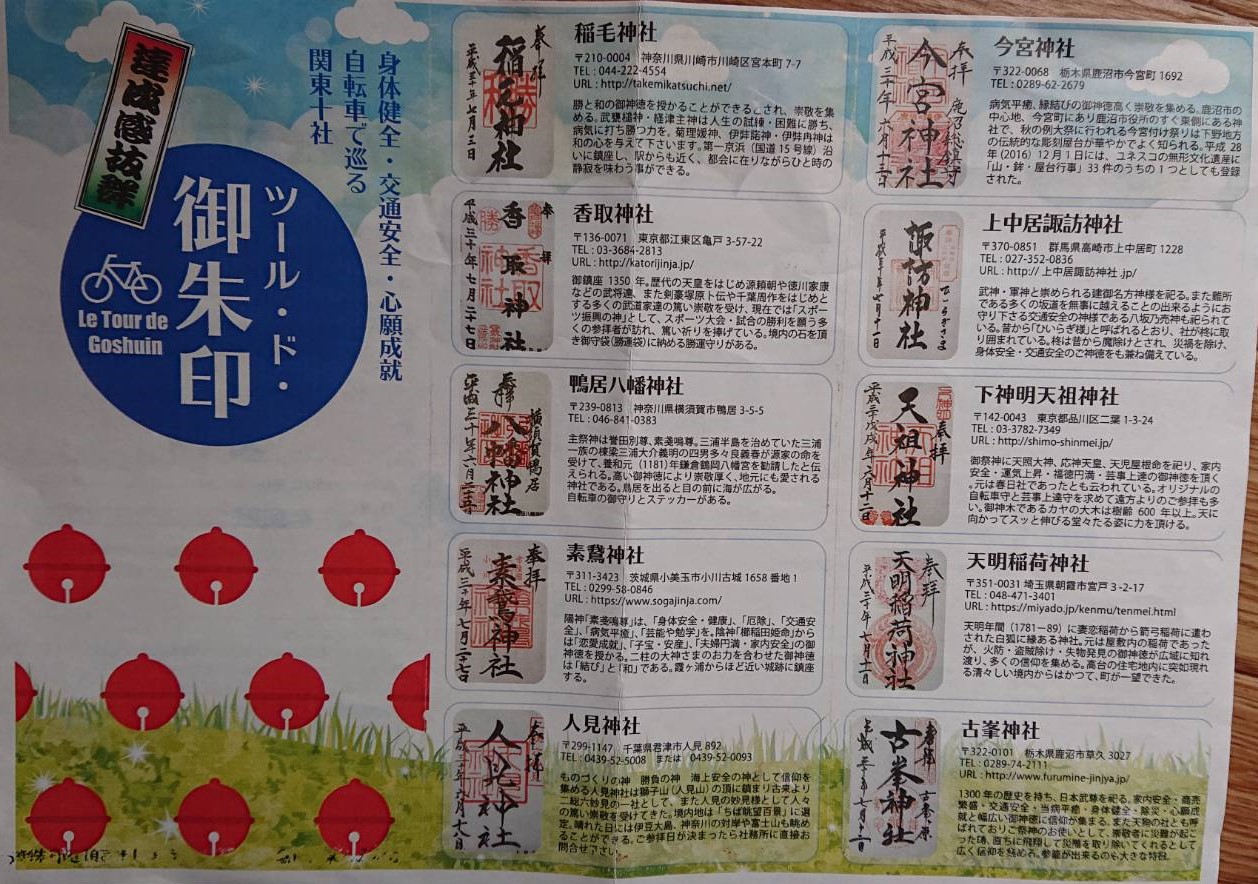 達成感抜群
身体健全・交通安全・心願成就
自転車で巡る
関東十社
ツール・ド・
御朱印
Le Tour de
Goshuin
稲毛神社
〒210-0004 神奈川県川崎市川崎区宮本町 7-7
TEL : 044-222-4554
URL : http://takemikatsuchi.net/
勝と和の御神徳を授かることができるとされ、崇敬を集
める。武甕槌神・経津主神は人生の試練・困難に勝ち、
病気に打ち勝つ力を。菊理媛神、伊弉諾神・伊弉冉神は
和の心を与えて下さいます。第一京浜（国道 15 号線）沿
いに鎮座し、駅からも近く、都会に在りながらひと時の
静寂を味わう事ができる。
奉拝
稲毛神社
平成三十年七月三日
香取神社
〒136-0071 東京都江東区亀戸 3-57-22
TEL : 03-3684-2813
URL : http://katorijinja.jp/
御鎮座 1350 年。歴代の天皇をはじめ源頼朝や徳川家康
などの武将達、また剣豪塚原卜伝や千葉周作をはじめと
する多くの武道家達の篤い崇敬を受け、現在では「スポー
ツ振興の神」として、スポーツ大会・試合の勝利を願う多
くの参拝者が訪れ、篤い祈りを捧げている。境内の石を頂
き御守袋（勝運袋）に納める勝運守りがある。
奉拝
香取神社
平成三十年七月二十七日
鴨居八幡神社
〒239-0813 神奈川県横須賀市鴨居 3-5-5
TEL : 046-841-0383
主祭神は誉田別尊、素戔鳴尊。三浦半島を治めていた三浦
一族の棟梁三浦大介義明の四男多々良義春が源家の命を
受けて、養和元（1181）年鎌倉鶴岡八幡宮を勧請したと伝
えられる。高い御神徳により崇敬厚く、地元にも愛される
神社である。鳥居を出ると目の前に海が広がる。
自転車の御守りとステッカーがある。
横須賀鴨居
八幡神社
素鵞神社
〒311-3423 茨城県小美玉市小川古城 1658 番地 1
TEL : 0299-58-0846
URL : https://www.sogajinja.com/
陽神「素戔鳴尊」は、「身体安全・健康」、「厄除」、「交通安
全」、「病気平癒」、「芸能や勉学」を。陰神「櫛稲田姫命」から
は「恋愛成就」、「子宝・安産」、「夫婦円満・家内安全」の御
神徳を授かる。二柱の大神さまのお力を合わせた御神徳
は「結び」と「和」である。霞ヶ浦からほど近い城跡に鎮座
する。
奉拝
素鵞神社
平成三十年七月二十七日
人見神社
〒299-1147 千葉県君津市人見 892
TEL : 0439-52-5008 または 0439-52-0093
ものづくりの神 勝負の神 海上安全の神として信仰を
集める人見神社は獅子山（人見山）の頂に鎮まり古来より
二総六妙見の一社として、また人見の妙見様として人々
の篤い崇敬を受けてきた。境内地は「ちば眺望百景」に選
定。晴れた日には伊豆大島、神奈川の対岸や富士山も眺め
ることができる。ご参拝日が決まったら社務所に直接お
問合せ下さい。
人見神社
今宮神社
〒322-0068 栃木県鹿沼市今宮町 1692
TEL : 0289-62-2679
病気平癒、縁結びの御神徳高く崇敬を集める。鹿沼市の
中心地、今宮町にあり鹿沼市役所のすぐ東側にある神
社で、秋の例大祭に行われる今宮付け祭りは下野地方
の伝統的な彫刻屋台が華やかでよく知られる。平成 28
年 (2016) 12 月 1 日には、ユネスコの無形文化遺産に
「山・鉾・屋台行事」 33 件のうちの 1 つとしても登録
された。
奉拝
鹿沼総鎮守
今宮神社
上中居諏訪神社
〒370-0851 群馬県高崎市上中居町 1228
TEL : 027-352-0836
URL : http:// 上中居諏訪神社 .jp/
武神・軍神と崇められる建御名方神様を祀る。また難所
である多くの坂道を無事に越えることの出来るようにお
守り下さる交通安全の神様である八坂乃売神も祀られて
いる。昔から「ひいらぎ様」と呼ばれるとおり、社が柊に取
り囲まれている。柊は昔から魔除けとされ、災禍を除け、
身体安全・交通安全のご神徳をも兼ね備えている。
ひいらぎさま
諏訪神社
下神明天祖神社
〒142-0043 東京都品川区二葉 1-3-24
TEL : 03-3782-7349
URL : http://shimo-shinmei.jp/
御祭神に天照大神、応神天皇、天児屋根命を祀り、家内
安全・運気上昇・福徳円満・芸事上達の御神徳を頂く
。元は春日社であったとも云われている。オリジナルの
自転車守と芸事上達守を求めて遠方よりのご参拝も多
い。御神木であるカヤの大木は樹齢 600 年以上。天に
向かってスッと伸びる堂々たる姿に力を頂ける。
奉拝
天祖神社
天明稲荷神社
〒351-0031 埼玉県朝霞市宮戸 3-2-17
TEL : 048-471-3401
URL : https://miyado.jp/kenmu/tenmei.html
天明年間（1781－89）に妻恋稲荷から箭弓稲荷に遣わ
された白狐に縁ある神社。元は屋敷内の稲荷であった
が、火防・盗賊除け・失物発見の御神徳が広域に知れ
渡り、多くの信仰を集める。高台の住宅地内に突如現れ
る清々しい境内からはかつて、町が一望できた。
奉拝
天明稲荷神社
古峯神社
〒322-0101 栃木県鹿沼市草久 3027
TEL : 0289-74-2111
URL : http://www.furumine-jinjya.jp/
1300 年の歴史を持ち、日本武尊を祀る。家内安全・商売
繁盛・交通安全・当病平癒・身体健全・除災・心願成
就と幅広い御神徳に信仰が集まる。また天狗の社とも呼
ばれておりご祭神のお使いとして、崇敬者に災難が起こ
った時、直ちに飛翔して災難を取り除いてくれるとして
広く信仰を集める。参籠が出来るのも大きな特徴。
古峯神社